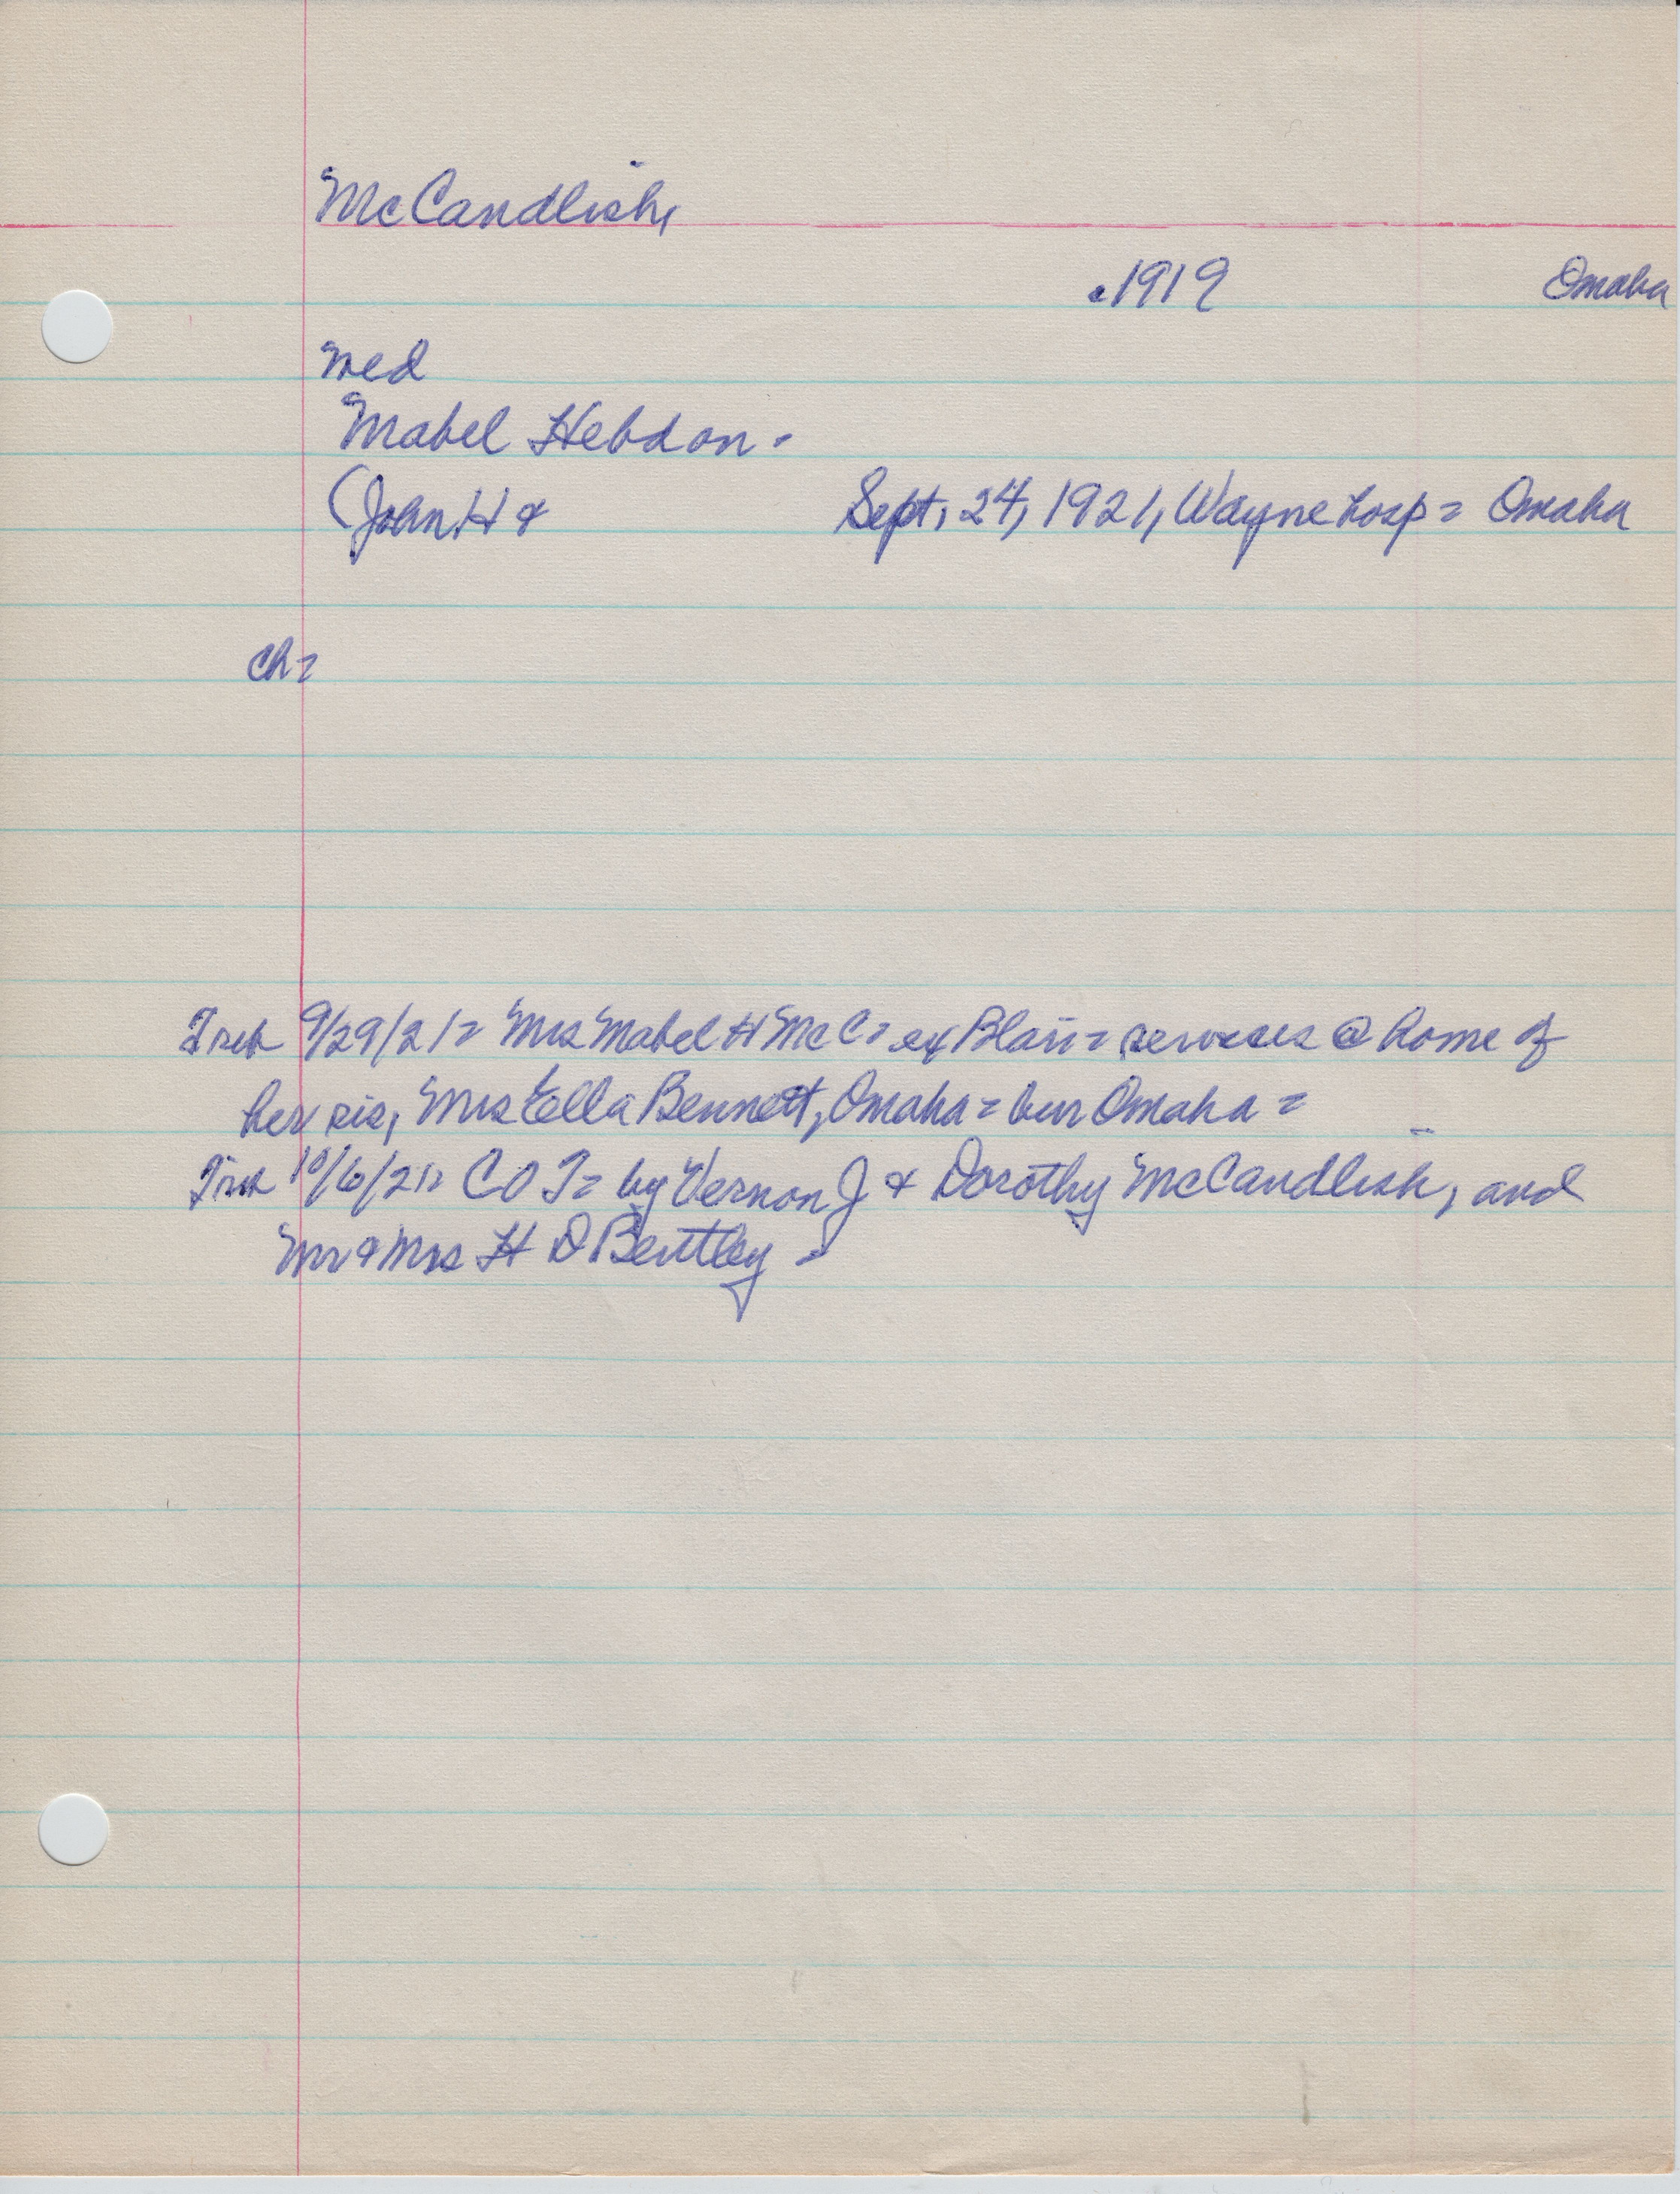 McCandlish,
c1919 Omaha
med
Mabel Hebdon -
(John H & Sept, 24, 1921, Wayne hosp = Omaha
ch =
9/29/21 = Mrs Mabel H McC = ex Blair = services @ home of
her sis, Mrs Ella Bennett, Omaha = bur Omaha =
10/6/21 = C O T = by Vernon J & Dorothy McCandlish, and
Mr & Mrs H D Bentley -